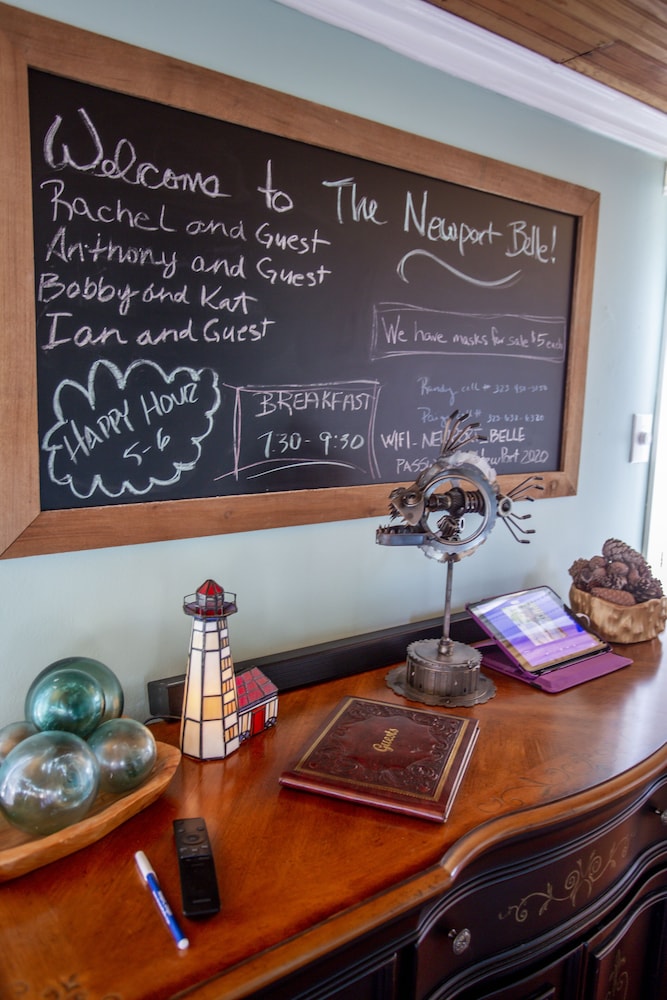 Welcome to The Newport Belle!
Rachel and Guest
Anthony and Guest
Bobby and Kat
Ian and Guest
We have masks for sale $5 each
HAPPY HOUR
5-6
BREAKFAST
7:30 - 9:30
call #
WIFI - NEWPORT_BELLE
2020
Guests